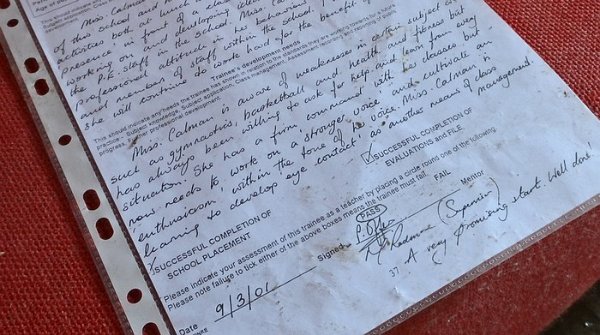 of this school and
activities both at lunch
presence in front of a class
working on and developing
the P.E. staff in the school. Miss. Calman
professional attitude in her behaviour
and member of staff within the school
she will continue to work hard for the benefit of
Trainee's development needs:
This should indicate any needs the trainee has shown in relation to the standards
practice - Subject knowledge, Subject application, Class management, Assessment
progress, Other professional development.
Miss. Calman is aware of weaknesses in certain subject areas
such as gymnastics, basketball and health and fitness but
has always been willing to ask for help and learn from every
situation. She has a firm 'command' with the classes but
now needs to work on a stronger voice and cultivate an
enthusiasm within the tone of the voice. Miss. Calman is
learning to develop 'eye contact' as another means of class
management.
SUCCESSFUL COMPLETION OF
EVALUATIONS AND FILE.
SUCCESSFUL COMPLETION OF
SCHOOL PLACEMENT
Please indicate your assessment of this trainee as a teacher by placing a circle round one of the following.
Please note failure to tick either of the above boxes means the trainee must fail.
PASS
FAIL
Signed
Mentor
(Supervisor)
Date 9/3/01
37
A very promising start. Well done!